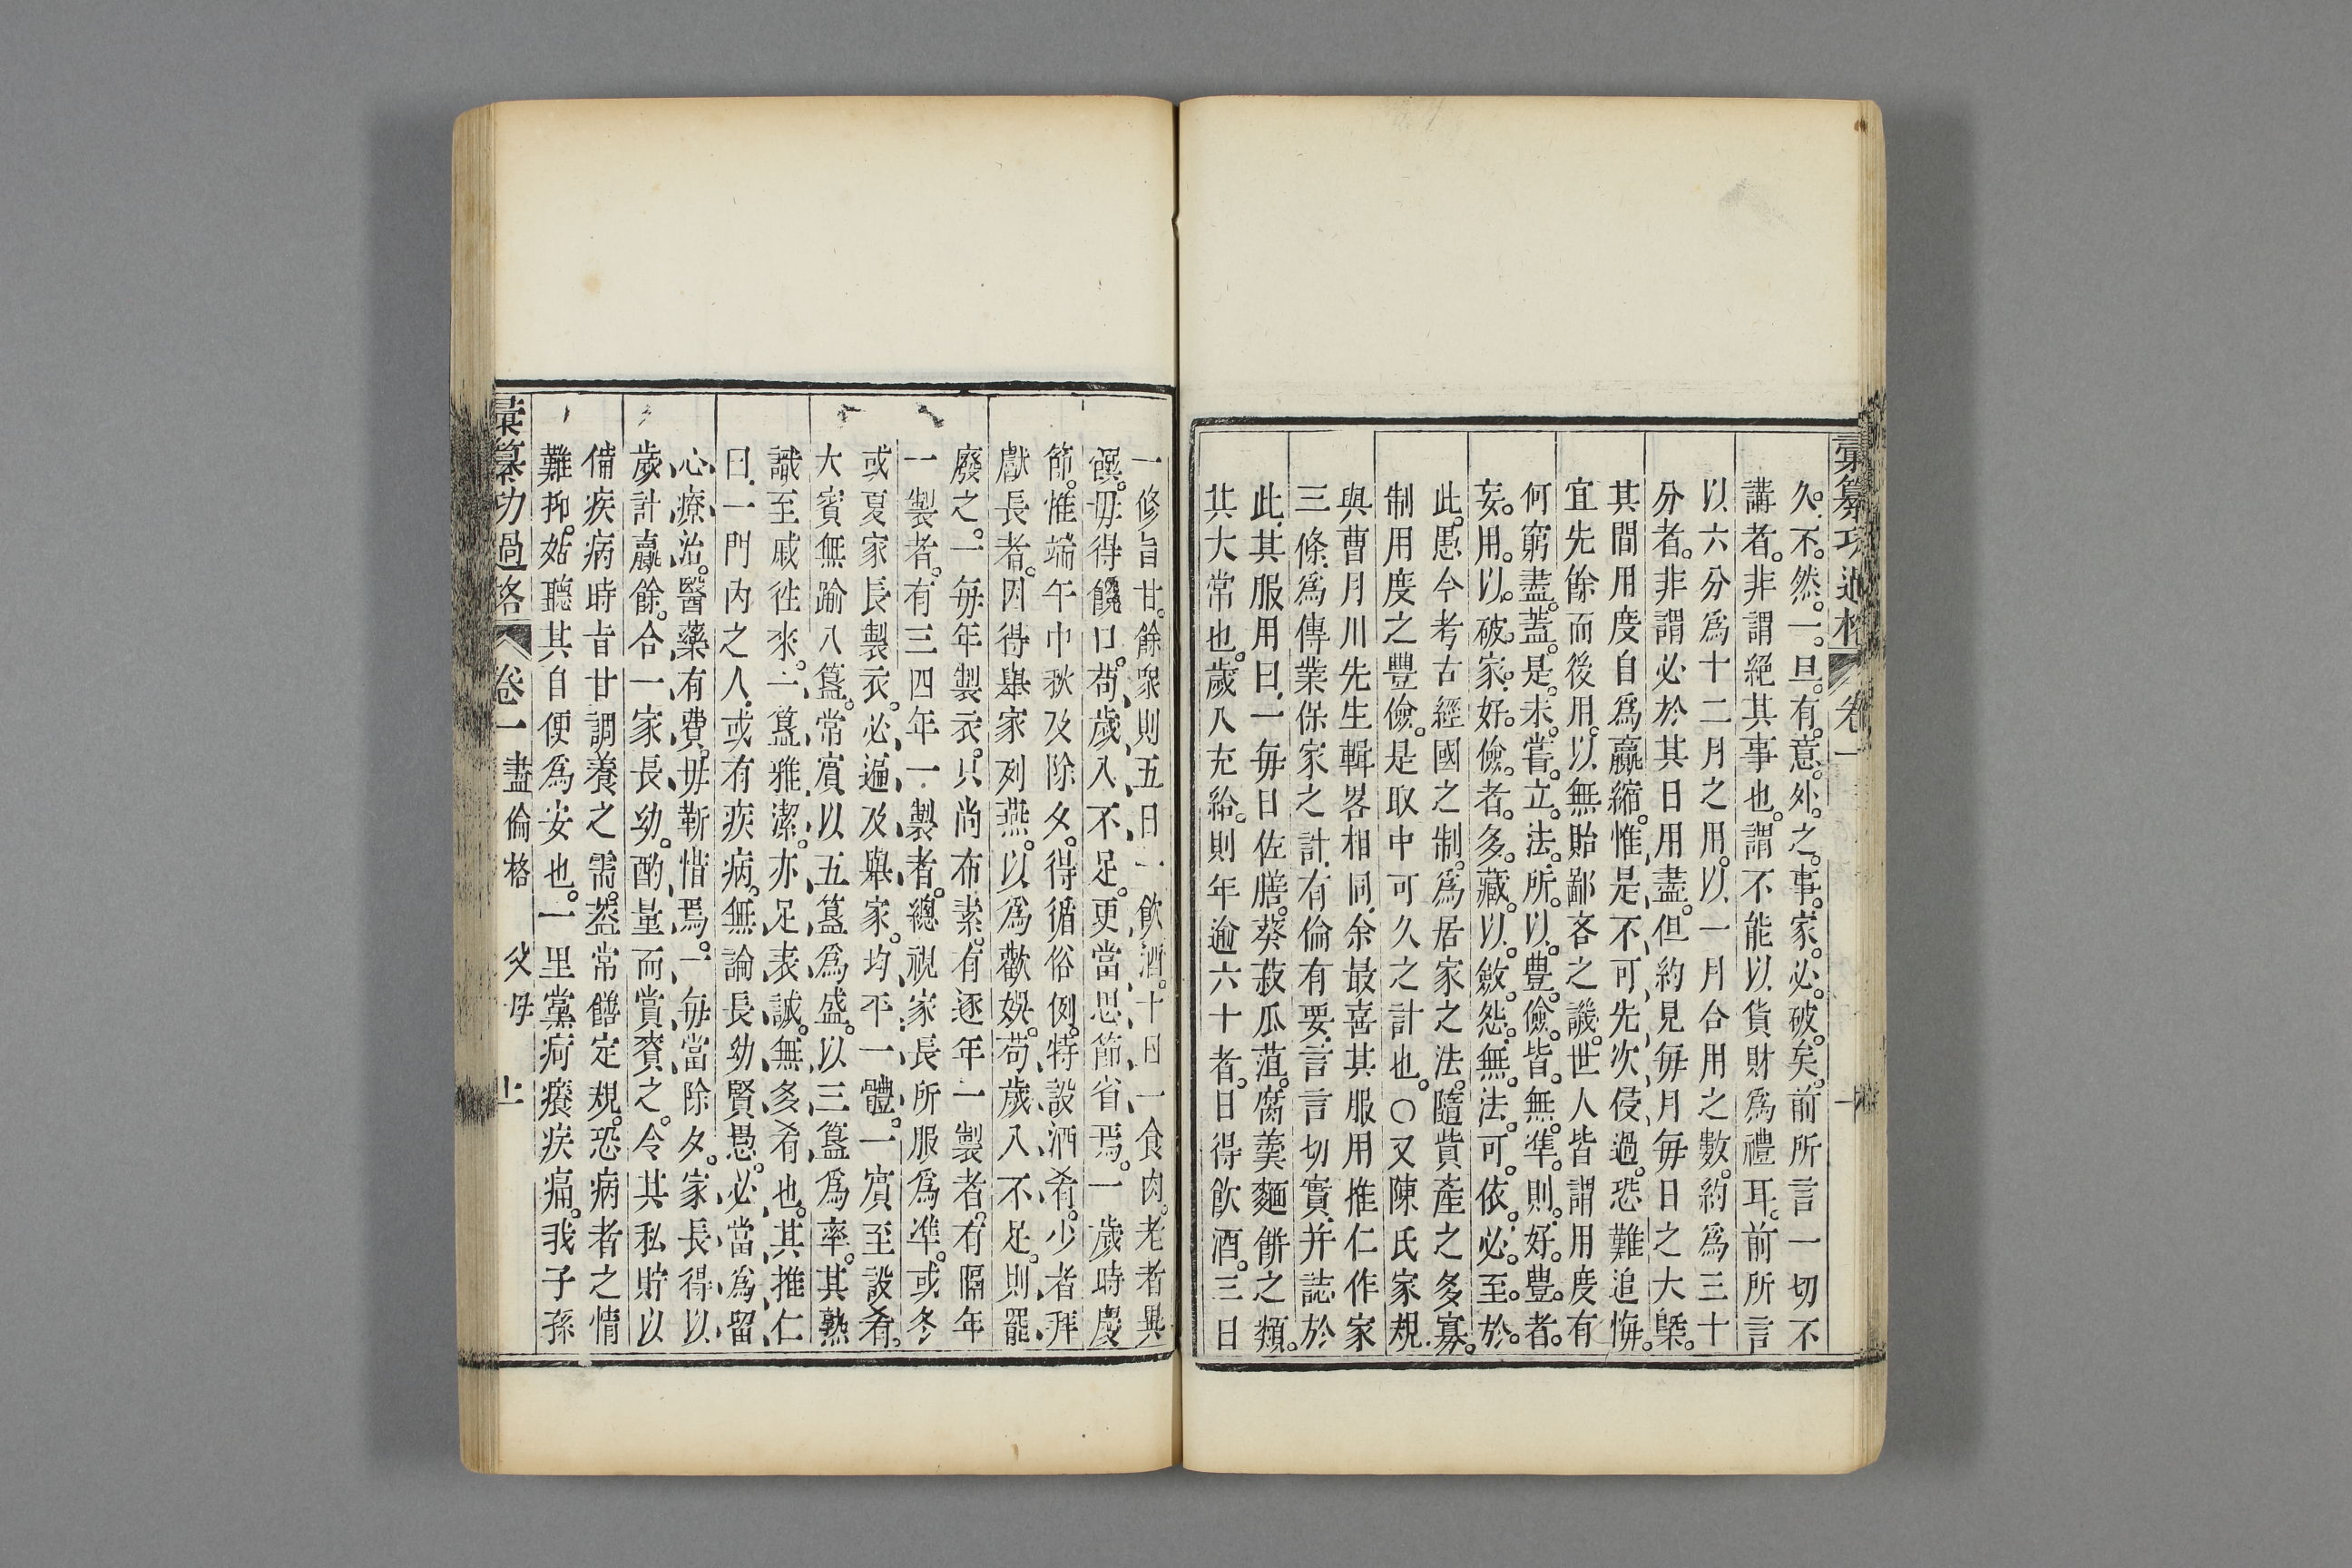 彙纂功過格 卷一
久。不。然。一。旦。有。意。外。之。事。家。必。破。矣。前所言一切不
講者。非謂絕其事也。謂不能以貨財為禮耳。前所言
以六分為十二月之用。以一月合用之數。約為三十
分者。非謂必於其日用盡。但約見每月每日之大槩。
其間用度自為贏縮。惟是不可先次侵過。恐難追悔。
宜先餘而後用。以無貽鄙吝之譏。世人皆謂用度有
何窮盡。蓋。是。未。嘗。立。法。所。以。豊。儉。皆。無。準。則。好。豊。者。
妄。用。以。破。家。好。儉。者。多。藏。以。斂。怨。無。法。可。依。必。至。於。
此。愚今考古經國之制。為居家之法。隨貲產之多寡。
制用度之豐儉。是取中可久之計也。〇又陳氏家規
與曹月川先生輯畧相同。余最喜其服用推仁作家
三條。為傳業保家之計。有倫有要。言言切實。并誌於
此。其服用曰。一每日佐膳。葵菽瓜菹。腐羹麵餅之類。
其大常也。歲入充給。則年逾六十者。日得飲酒。三日
一修旨甘。餘眾則五日一飲酒。十日一食肉。老者與
饌。毋得饞口。苟歲入不足。更當思節省焉。一歲時慶
節。惟端午中秋及除夕。得循俗例。特設酒肴。少者拜
獻長者。因得舉家列燕。以為歡娛。苟歲入不足。則罷
廢之。一每年製衣。只尚布素。有逐年一製者。有隔年
一製者。有三四年一製者。總視家長所服為準。或冬
或夏家長製衣。必遍及舉家。均平一體。一賓至設肴。
大賓無踰八簋。常賓以五簋為盛。以三簋為率。其熟
識至戚往來。二簋雅潔。亦足表誠。無多肴也。其推仁
曰。一門內之人。或有疾病。無論長幼賢愚。必當為留
心療治。醫藥有費。毋靳惜焉。一每當除夕。家長得以
歲計贏餘。合一家長幼。酌量而賞賚之。令其私貯以
備疾病時旨甘調養之需。蓋常饍定規。恐病者之情
難抑。姑聽其自便為安也。一里黨疴癢疾痛。我子孫
彙纂功過格 卷一 盡倫格 父母 上